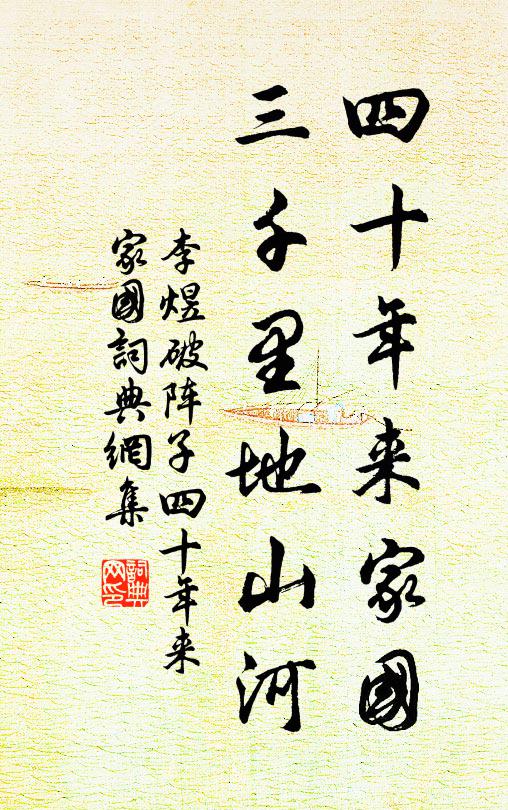 四十年来家國
三千里地山河
李煜破阵子四十年来
家國詞典網集
詞典网印